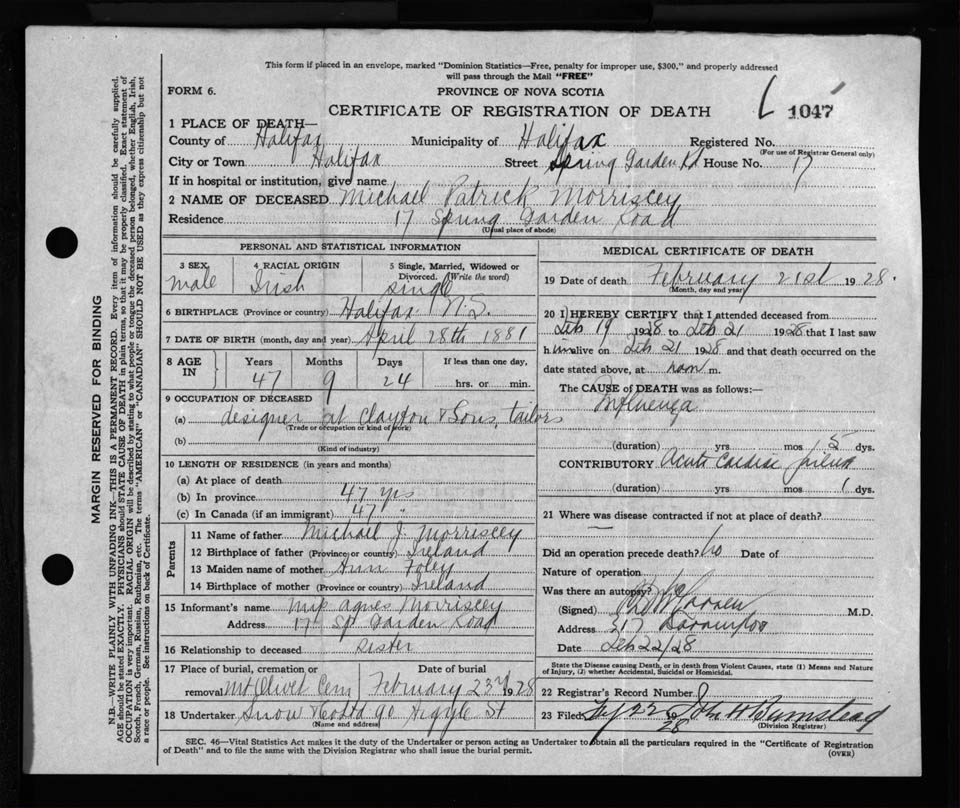 This form if placed in an envelope, marked "Dominion Statistics—Free, penalty for improper use, $300," and properly addressed
will pass through the Mail "FREE"
FORM 6.
PROVINCE OF NOVA SCOTIA
CERTIFICATE OF REGISTRATION OF DEATH
1047
1 PLACE OF DEATH—
County of Halifax Municipality of Halifax Registered No.
(For use of Registrar General only)
City or Town Halifax Street Spring Garden Rd House No. 17
If in hospital or institution, give name
2 NAME OF DECEASED Michael Patrick Morriscey
Residence 17 Spring Garden Road
(Usual place of abode)
PERSONAL AND STATISTICAL INFORMATION
3 SEX 4 RACIAL ORIGIN 5 Single, Married, Widowed or
Divorced. (Write the word)
Male Irish single
6 BIRTHPLACE (Province or country) Halifax N.S.
7 DATE OF BIRTH (month, day and year) April 28th 1881
8 AGE IN Years Months Days If less than one day,
47 9 24 hrs. or min.
9 OCCUPATION OF DECEASED
(a) designer at Clayton & Sons, tailors
(Trade or occupation or kind of work)
(b)
(Kind of industry)
10 LENGTH OF RESIDENCE (in years and months)
(a) At place of death
(b) In province 47 yrs
(c) In Canada (if an immigrant) 47 "
Parents
11 Name of father Michael J. Morriscey
12 Birthplace of father (Province or country) Ireland
13 Maiden name of mother Ann Foley
14 Birthplace of mother (Province or country) Ireland
15 Informant's name Miss Agnes Morriscey
Address 17 Sp Garden Road
16 Relationship to deceased sister
17 Place of burial, cremation or Date of burial
removal Mt. Olivet Cem February 23rd 1928
18 Undertaker Snow & Co Ltd 90 Argyle St
(Name and address)
MEDICAL CERTIFICATE OF DEATH
19 Date of death February 21st 1928.
(Month, day and year)
20 I HEREBY CERTIFY that I attended deceased from
Feb 19 1928 to Feb 21 1928 that I last saw
him alive on Feb 21 1928 and that death occurred on the
date stated above, at m.
The CAUSE of DEATH was as follows:—
Influenza
(duration) yrs mos 5 dys.
CONTRIBUTORY Acute Cardiac failure
(duration) yrs mos 1 dys.
21 Where was disease contracted if not at place of death?
Did an operation precede death? No Date of
Nature of operation
Was there an autopsy? No
(Signed) M.D.
Address 217
Date Feb 22/28
State the Disease causing Death, or in death from Violent Causes, state (1) Means and Nature
of Injury, (2) whether Accidental, Suicidal or Homicidal.
22 Registrar's Record Number
23 Filed 28 John H Barnstead
(Division Registrar)
SEC. 46—Vital Statistics Act makes it the duty of the Undertaker or person acting as Undertaker to obtain all the particulars required in the "Certificate of Registration
of Death" and to file the same with the Division Registrar who shall issue the burial permit.
(OVER)
MARGIN RESERVED FOR BINDING
N.B.—WRITE PLAINLY WITH UNFADING INK—THIS IS A PERMANENT RECORD. Every item of information should be carefully supplied.
AGE should be stated EXACTLY. PHYSICIANS should STATE CAUSE OF DEATH in plain terms, so that it may be properly classified. Exact statement of
OCCUPATION is very important. RACIAL ORIGIN will be described by stating to what people or tongue the deceased person belonged, whether English, Irish,
Scotch, French, German, Russian, Ruthenian, etc. The terms "AMERICAN" or "CANADIAN" SHOULD NOT BE USED as they express citizenship but not
a race or people. See instructions on back of Certificate.